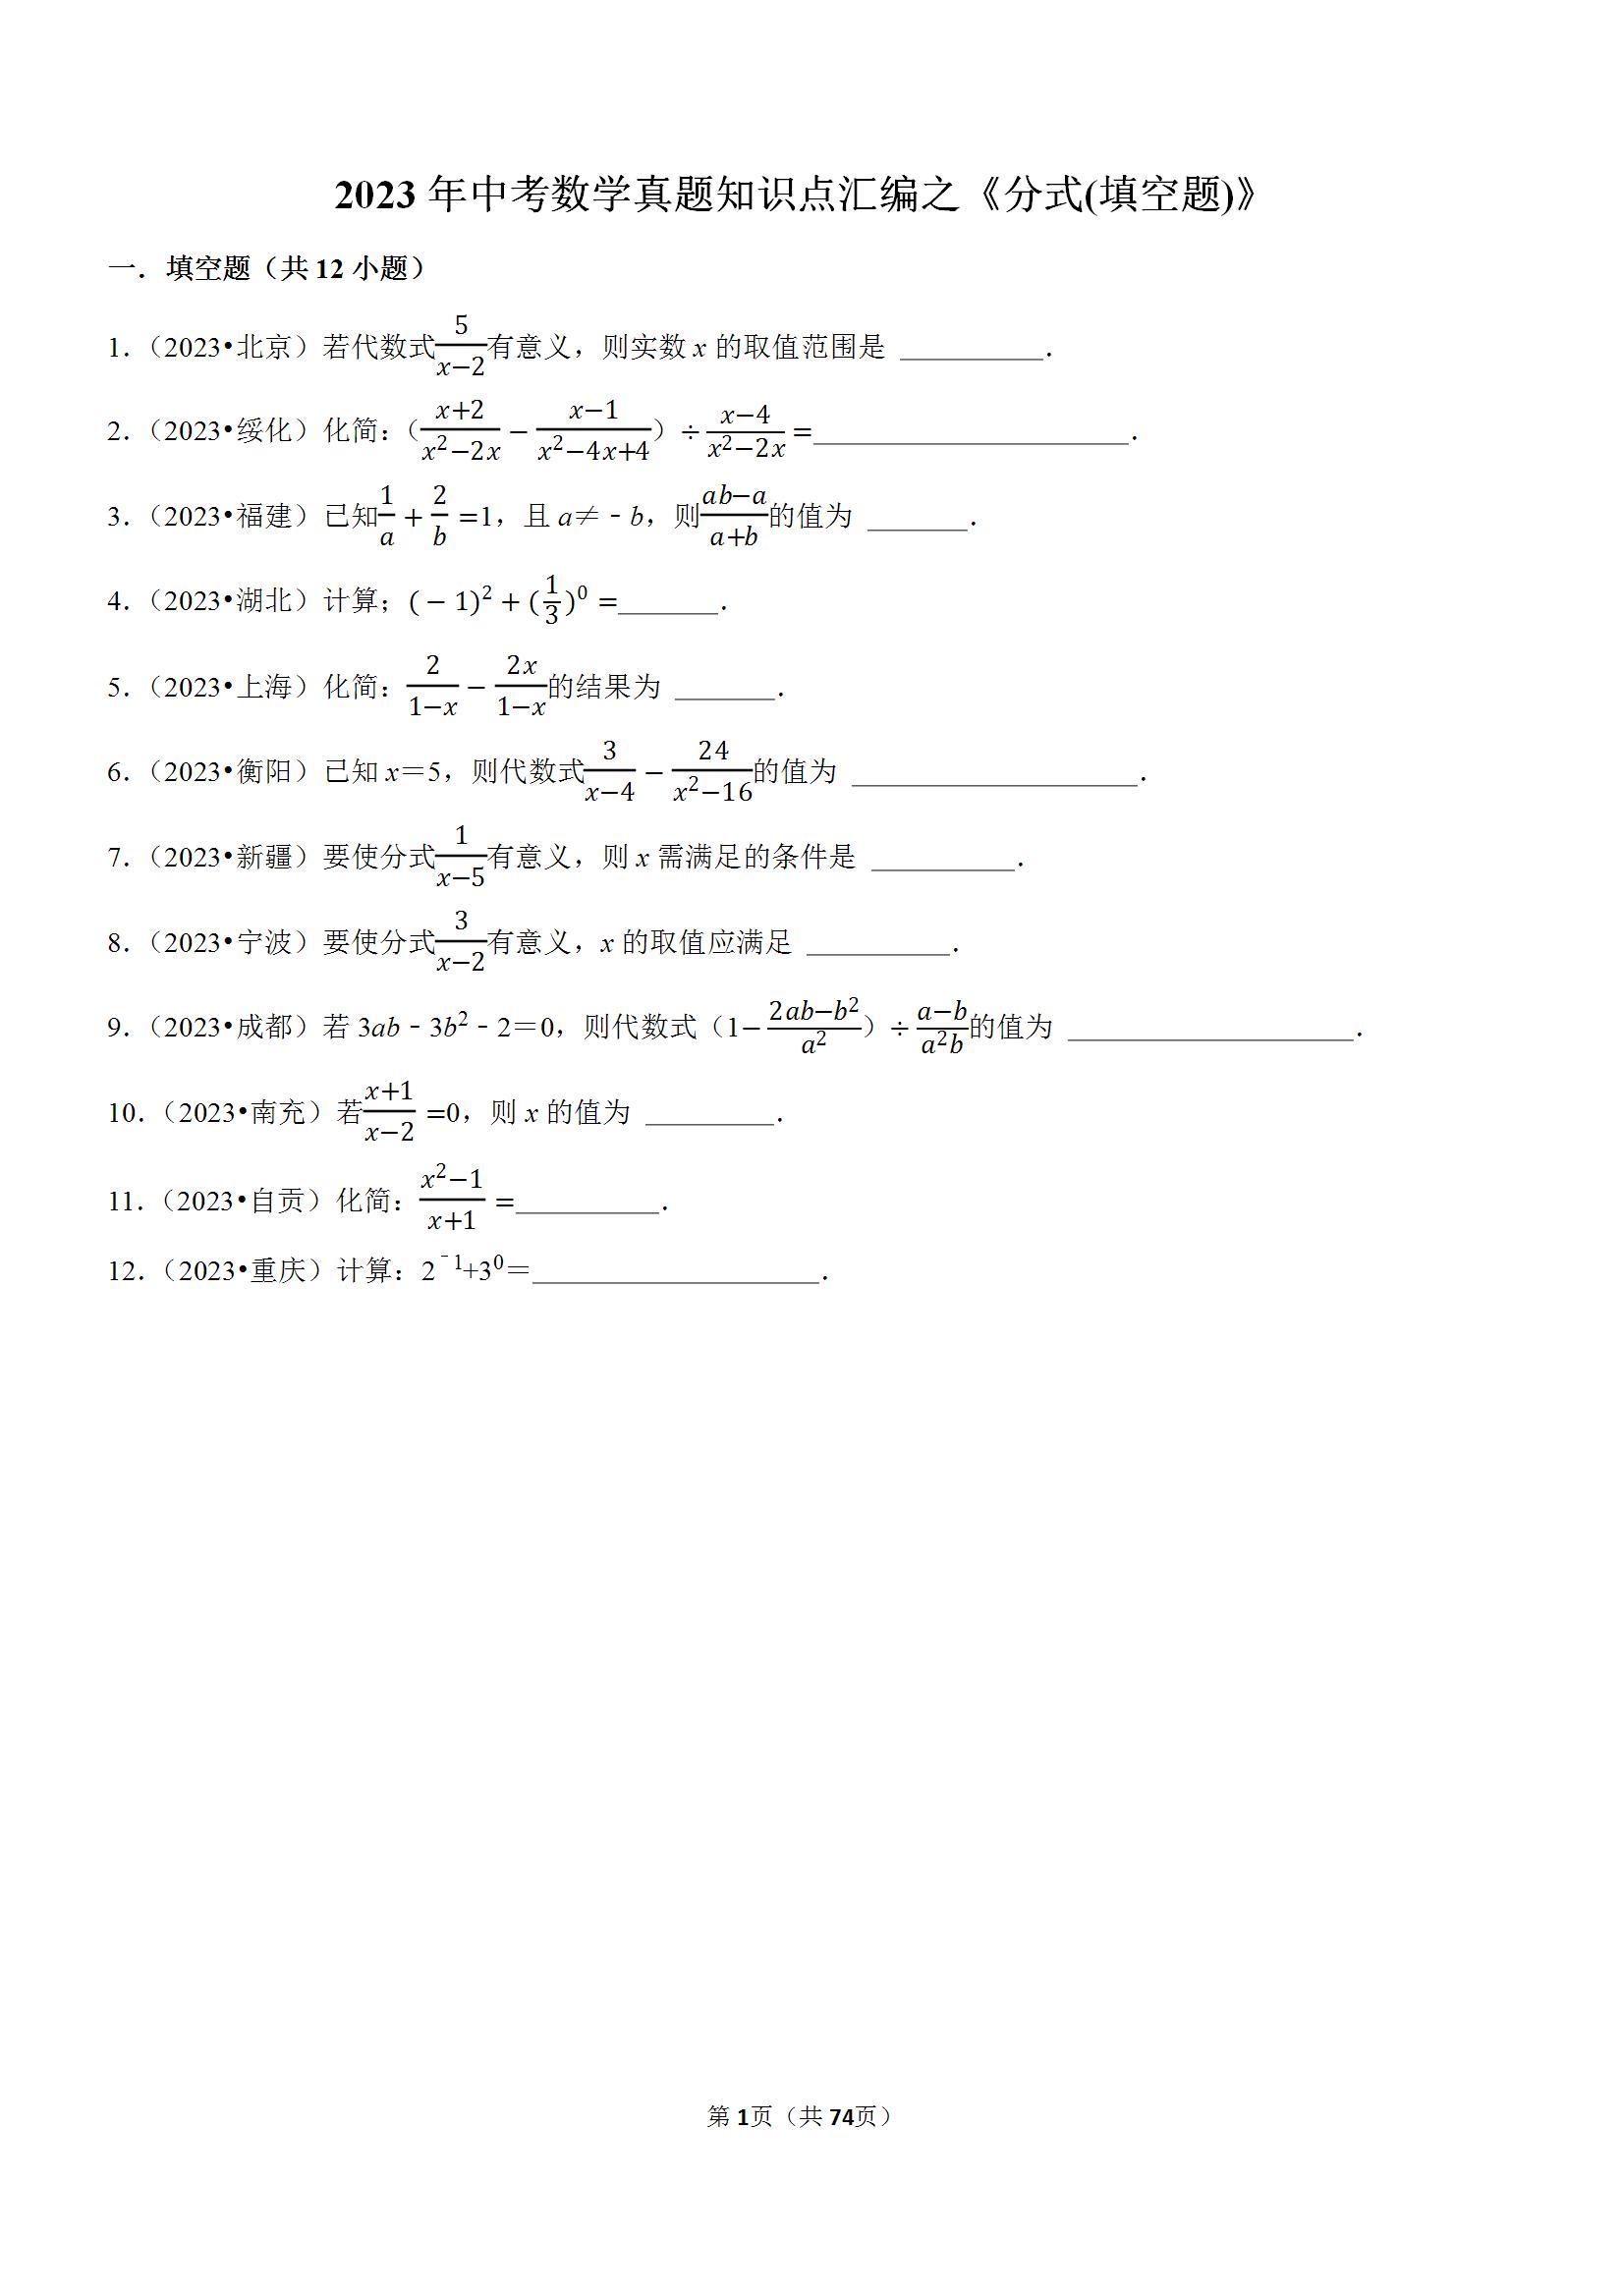 2023 年中考数学真题知识点汇编之《分式(填空题)》
一．填空题（共 12 小题）
1．（2023•北京）若代数式$\frac{5}{x-2}$有意义，则实数 x 的取值范围是 __________．
2．（2023•绥化）化简：（$\frac{x+2}{x^2-2x}-\frac{x-1}{x^2-4x+4}$）÷$\frac{x-4}{x^2-2x}$=______________________．
3．（2023•福建）已知$\frac{1}{a}+\frac{2}{b}$=1，且 a≠﹣b，则$\frac{ab-a}{a+b}$的值为 _______．
4．（2023•湖北）计算；$(-1)^2+(\frac{1}{3})^0$=_______．
5．（2023•上海）化简：$\frac{2}{1-x}-\frac{2x}{1-x}$的结果为 _______．
6．（2023•衡阳）已知 x＝5，则代数式$\frac{3}{x-4}-\frac{24}{x^2-16}$的值为 ____________________．
7．（2023•新疆）要使分式$\frac{1}{x-5}$有意义，则 x 需满足的条件是 __________．
8．（2023•宁波）要使分式$\frac{3}{x-2}$有意义，x 的取值应满足 __________．
9．（2023•成都）若 3ab﹣3b$^2$﹣2＝0，则代数式（1$-\frac{2ab-b^2}{a^2}$）÷$\frac{a-b}{a^2b}$的值为 ____________________．
10．（2023•南充）若$\frac{x+1}{x-2}$=0，则 x 的值为 _________．
11．（2023•自贡）化简：$\frac{x^2-1}{x+1}$=__________．
12．（2023•重庆）计算：2$^{﹣1}$+3$^0$＝____________________．
第 1页（共 74页）